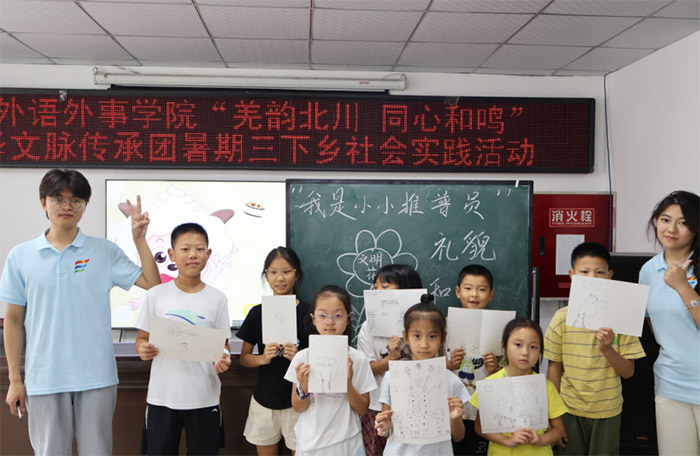 外语外事学院“羌韵北川 同心和鸣”
文脉传承团暑期三下乡社会实践活动
“我是小小推普员”
文明花
礼貌
和
消火栓